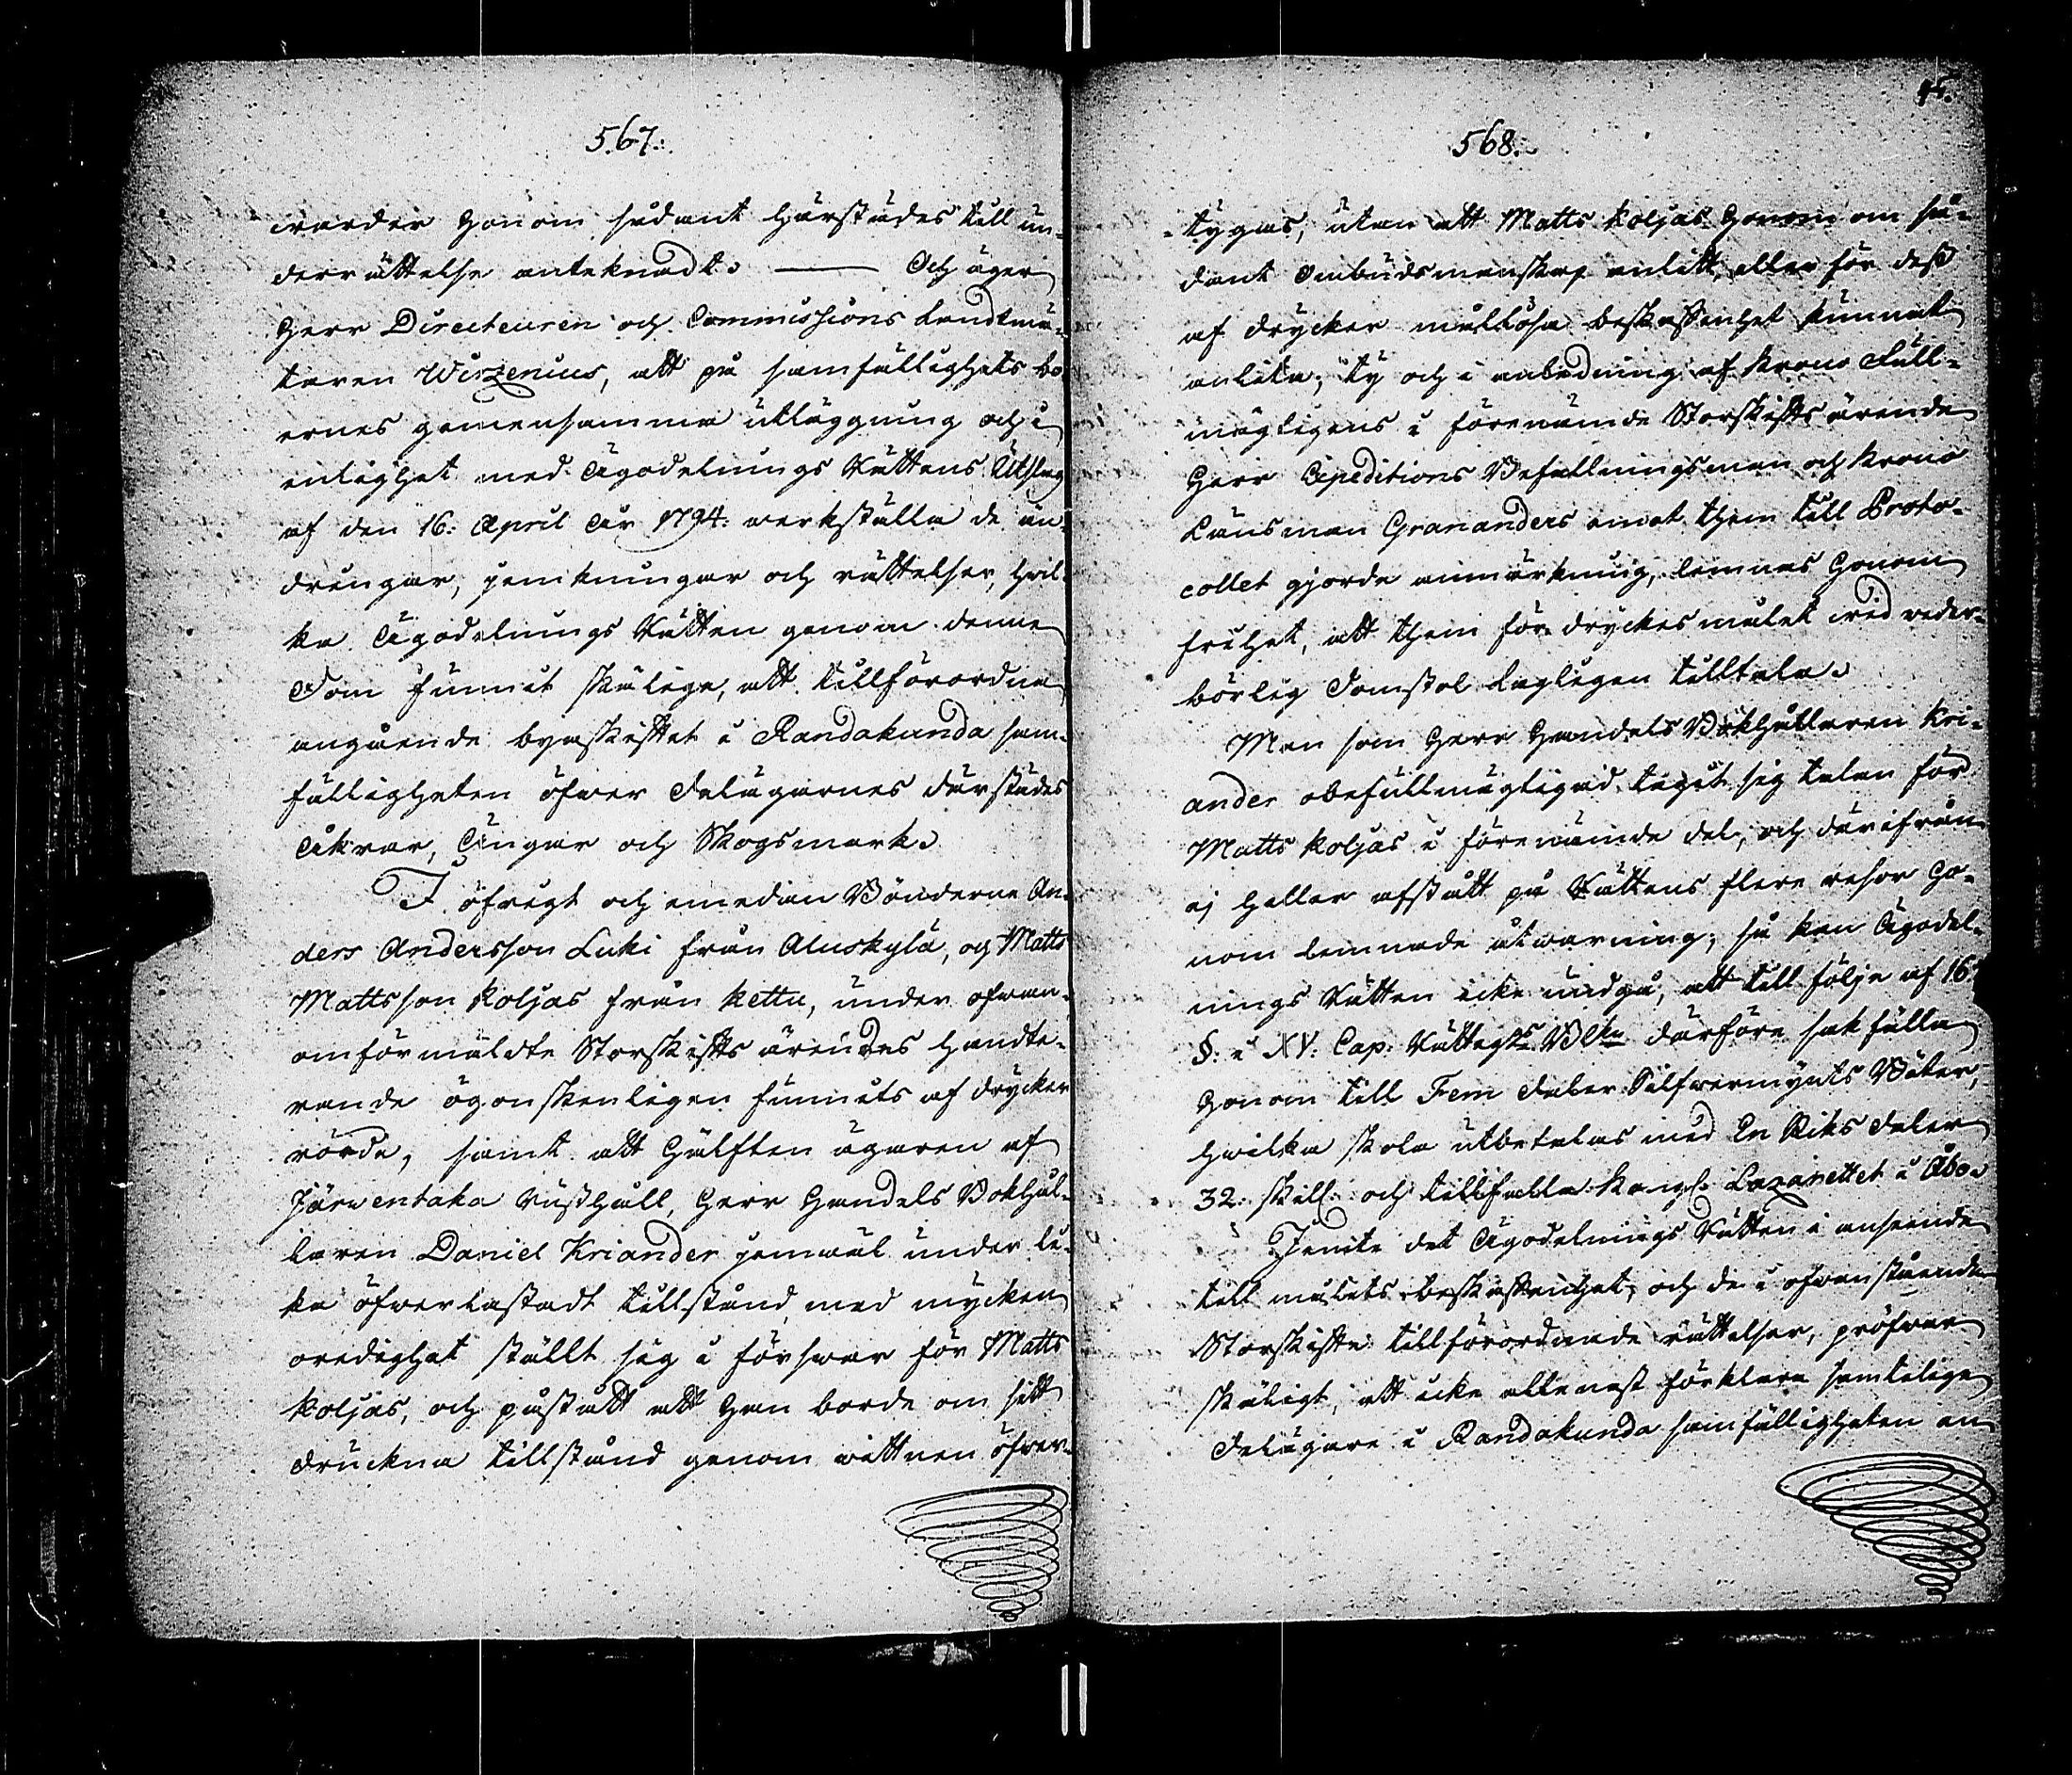 567.
warder honom sådant härstädes till un-
derrättelse antecknadt. — Och äger
Herr Directeuren och Commissions Landtmä-
taren Wirzenius, att på samfällighets bo-
ernes gemensamma utläggning och i
enlighet med Ägodelnings Rättens Utslag
af den 16: April År 1794. werkställa de än-
dringar, jemkningar och rättelser, hvil-
ka Ägodelnings Rätten genom denne
Dom funnit skälige, att tillförordna
angående byaskiftet i Randakunda sam-
fälligheten öfwer Delägarnes därstädes
Åkrar, Ängar och Skogsmark.
I öfrigt och emedan Bönderne An-
ders Andersson Luki från Aluskylä, och Matts
Mattsson Koljas från Kettu, under ofwan-
omförmäldte Storskifts ärendes handte-
rande ögonskenligen funnits af drycker
rörde, samt att Hälften ägaren af
Järwentaka Rusthåll, Herr Handels Bokhål-
laren Daniel Kriander jemwäl under li-
ka öfwerlastadt tillstånd med mycken
oredighet ställt sig i förswar för Matts
Koljas, och påstått att han borde om sitt
druckna tillstånd genom wittnen öfwer-
45.
568.
-tygas, utan att Matts Koljas honom om så-
dant Ombudsmanskap anlitt, eller för dess
af drycker mållösa beskaffenhet kunnat
anlita; ty och i anledning af Krono Full-
mägtigens i förenämde Storskifts ärende
Herr Expeditions Befallningsman och Krono
Länsman Grananders emot them till Proto-
collet gjorde anmärkning, lemnas honom
frihet, att them för dryckesmålet wid weder-
börlig Domstol lagligen tilltala.
Men som Herr Handels Bokhållaren Kri-
ander obefullmägtigad tagit sig talan för
Matts Koljas i förenämde del, och därifrån
ej heller afstått på Rättens flere resor ho-
nom lemnade åtwarning; så kan Ägodel-
nings Rätten icke undgå, att till följe af 16
§: i XV: Cap: Rättegs Blkn därföre sakfälla
honom till Fem daler Silfwermynts Böter,
hwilka skola utbetalas med En Riks daler
32: skill: och tillfalla Kongl. Lazarettet i Åbo.
Jemte det Ägodelnings Rätten i anseende
till målets beskaffenhet, och de i ofwanstående
Storskifte tillförordnade rättelser, pröfwar
skäligt, att icke allenast förklara samtelige
Delägare i Randakunda samfälligheten an